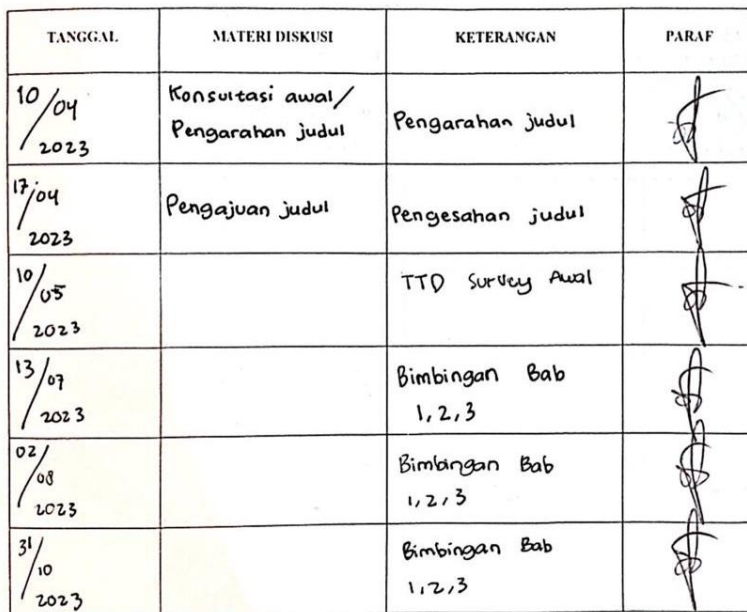 TANGGAL MATERI DISKUSI KETERANGAN PARAF
10/04 2023 Konsultasi awal/ Pengarahan judul Pengarahan judul
17/04 2023 Pengajuan judul Pengesahan judul
10/05 2023 TTD Survey Awal
13/07 2023 Bimbingan Bab 1,2,3
02/08 2023 Bimbingan Bab 1,2,3
31/10 2023 Bimbingan Bab 1,2,3